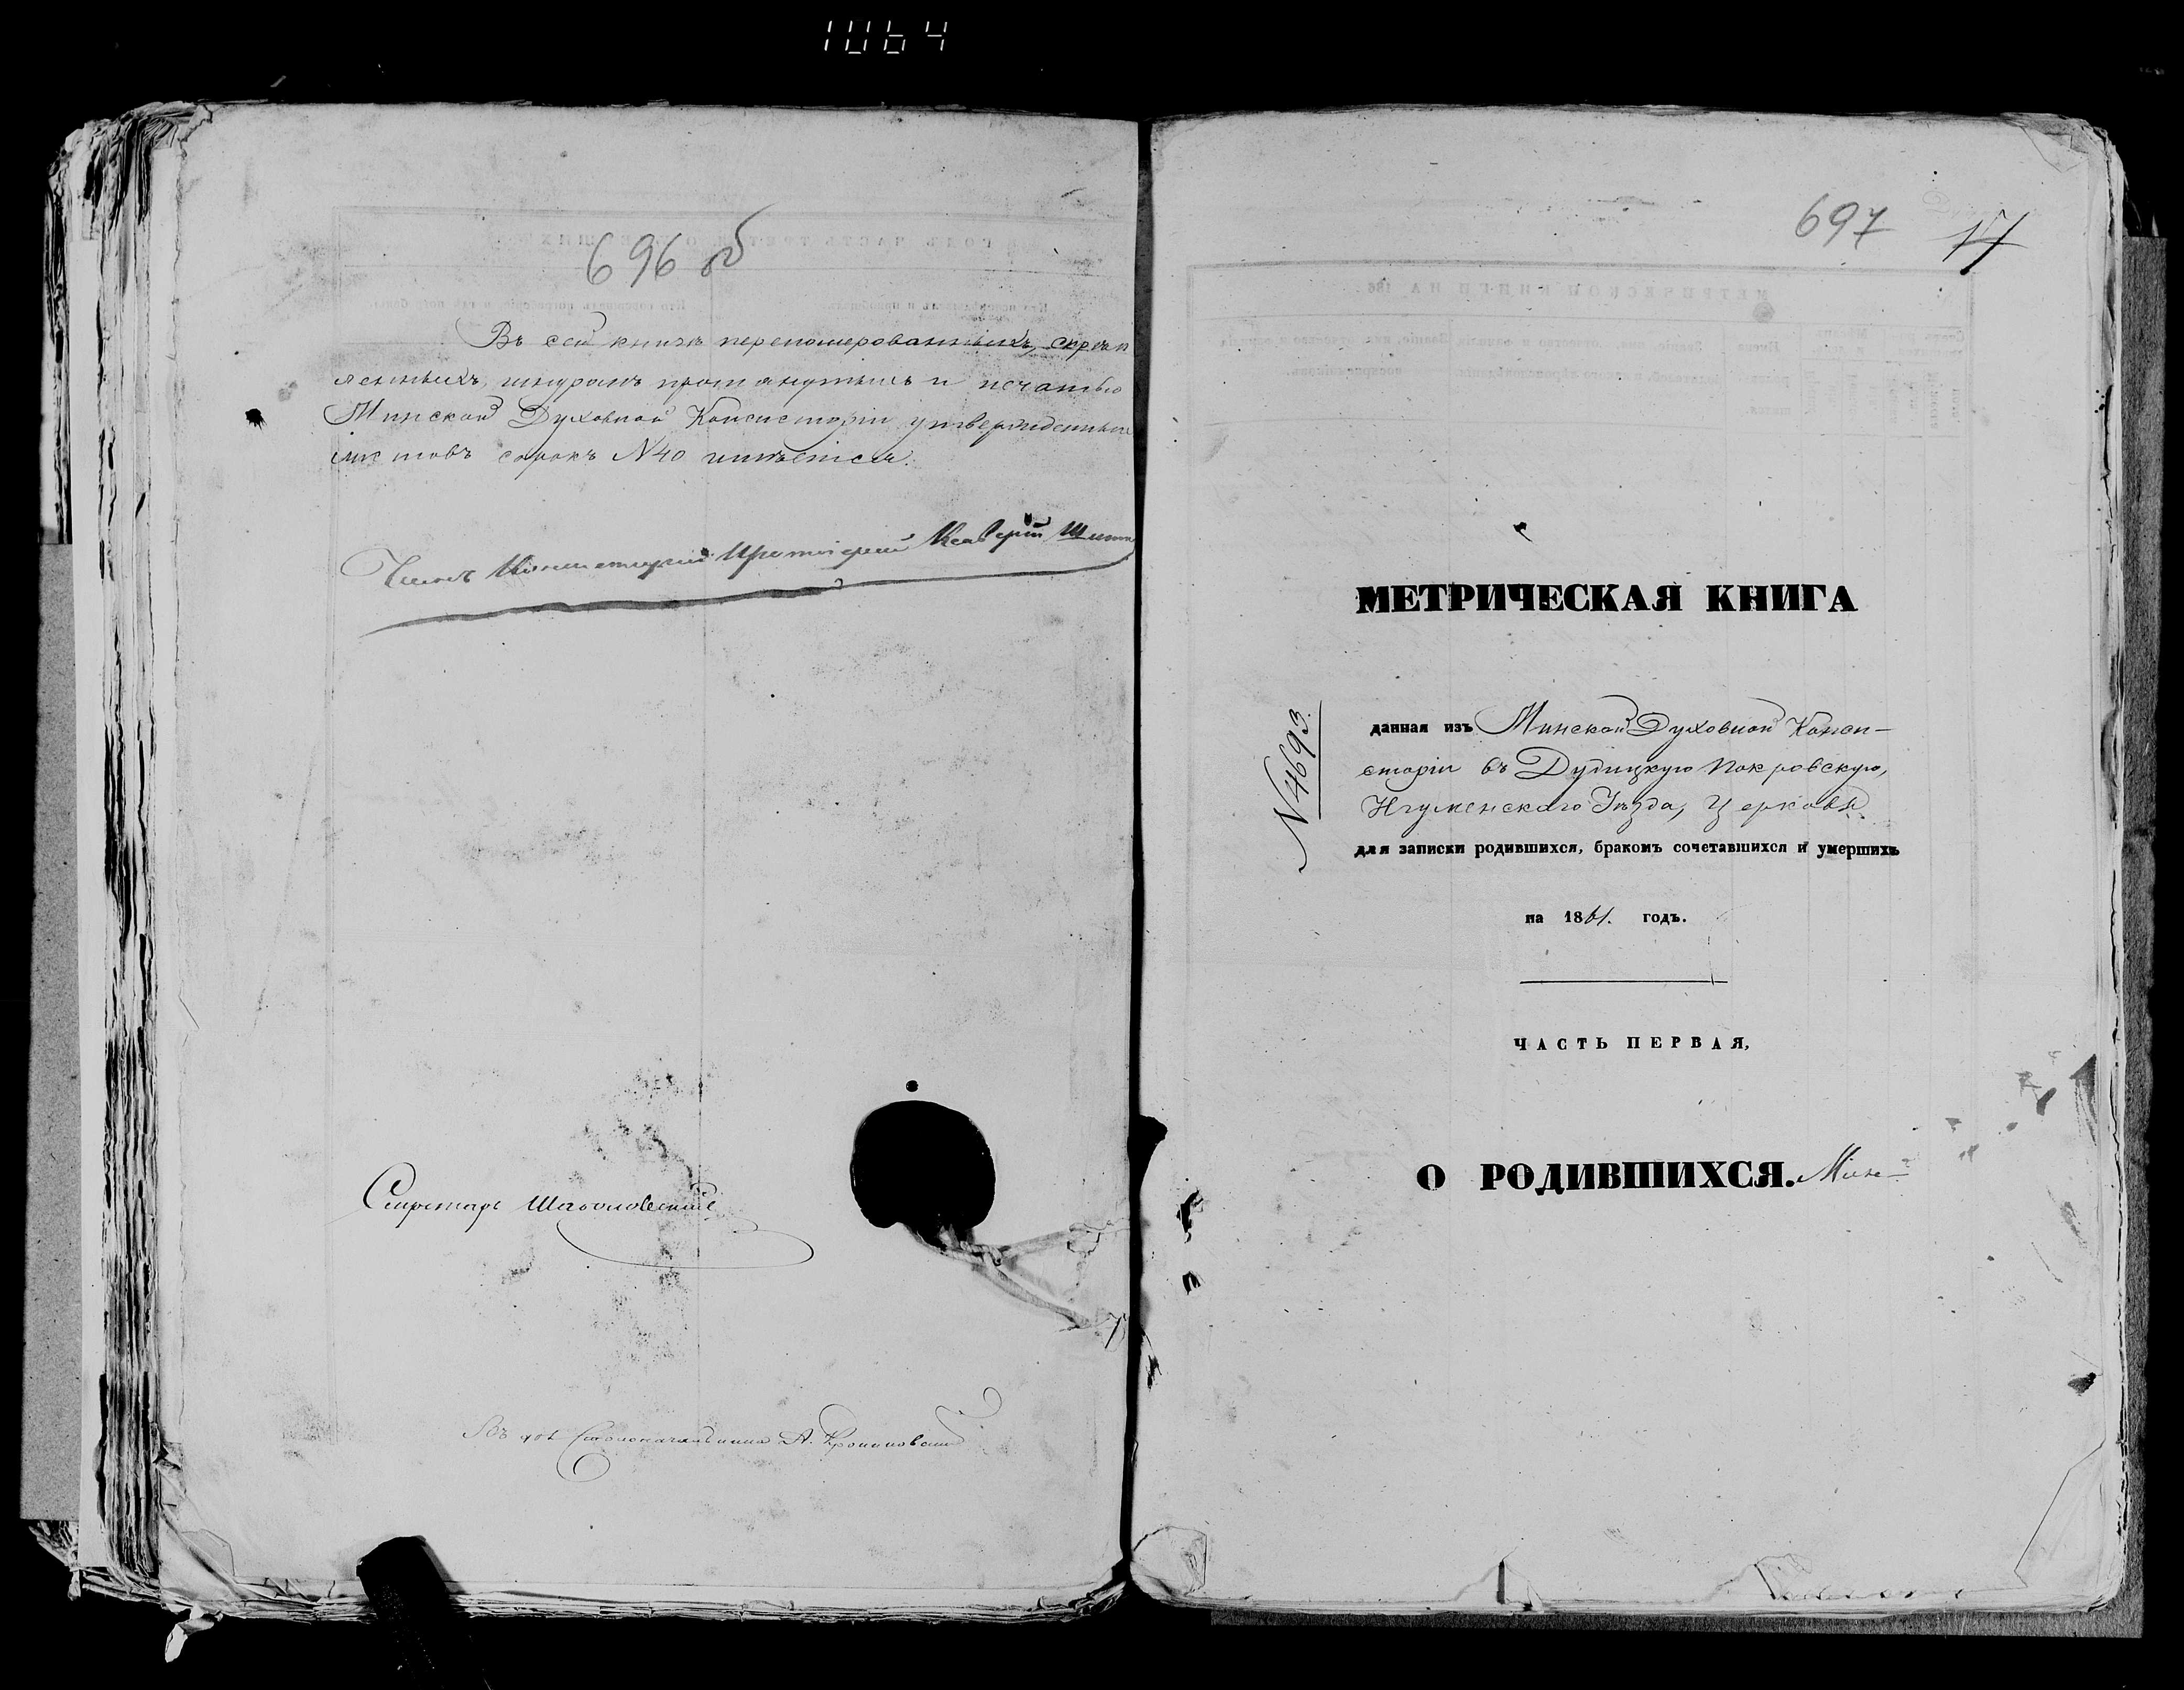 1064
696 об
Въ сей книгѣ переномерованныхъ, скрѣп
ленныхъ, шнуромъ протянутыхъ и печатью
Минской Духовной Консисторіи утвержденныхъ
листовъ сорокъ N40 имѣется.
Членъ Консисторіи Протоіерей
Секретарь
Столоначальника А.
697 17
МЕТРИЧЕСКАЯ КНИГА
N 4693.
данная изъ Минской Духовной Конси-
сторіи въ Дудицкую Покровскую,
Игуменскаго Уѣзда, Церковь
для записки родившихся, бракомъ сочетавшихся и умершихъ
на 1861. годъ.
ЧАСТЬ ПЕРВАЯ,
О РОДИВШИХСЯ. Мин-